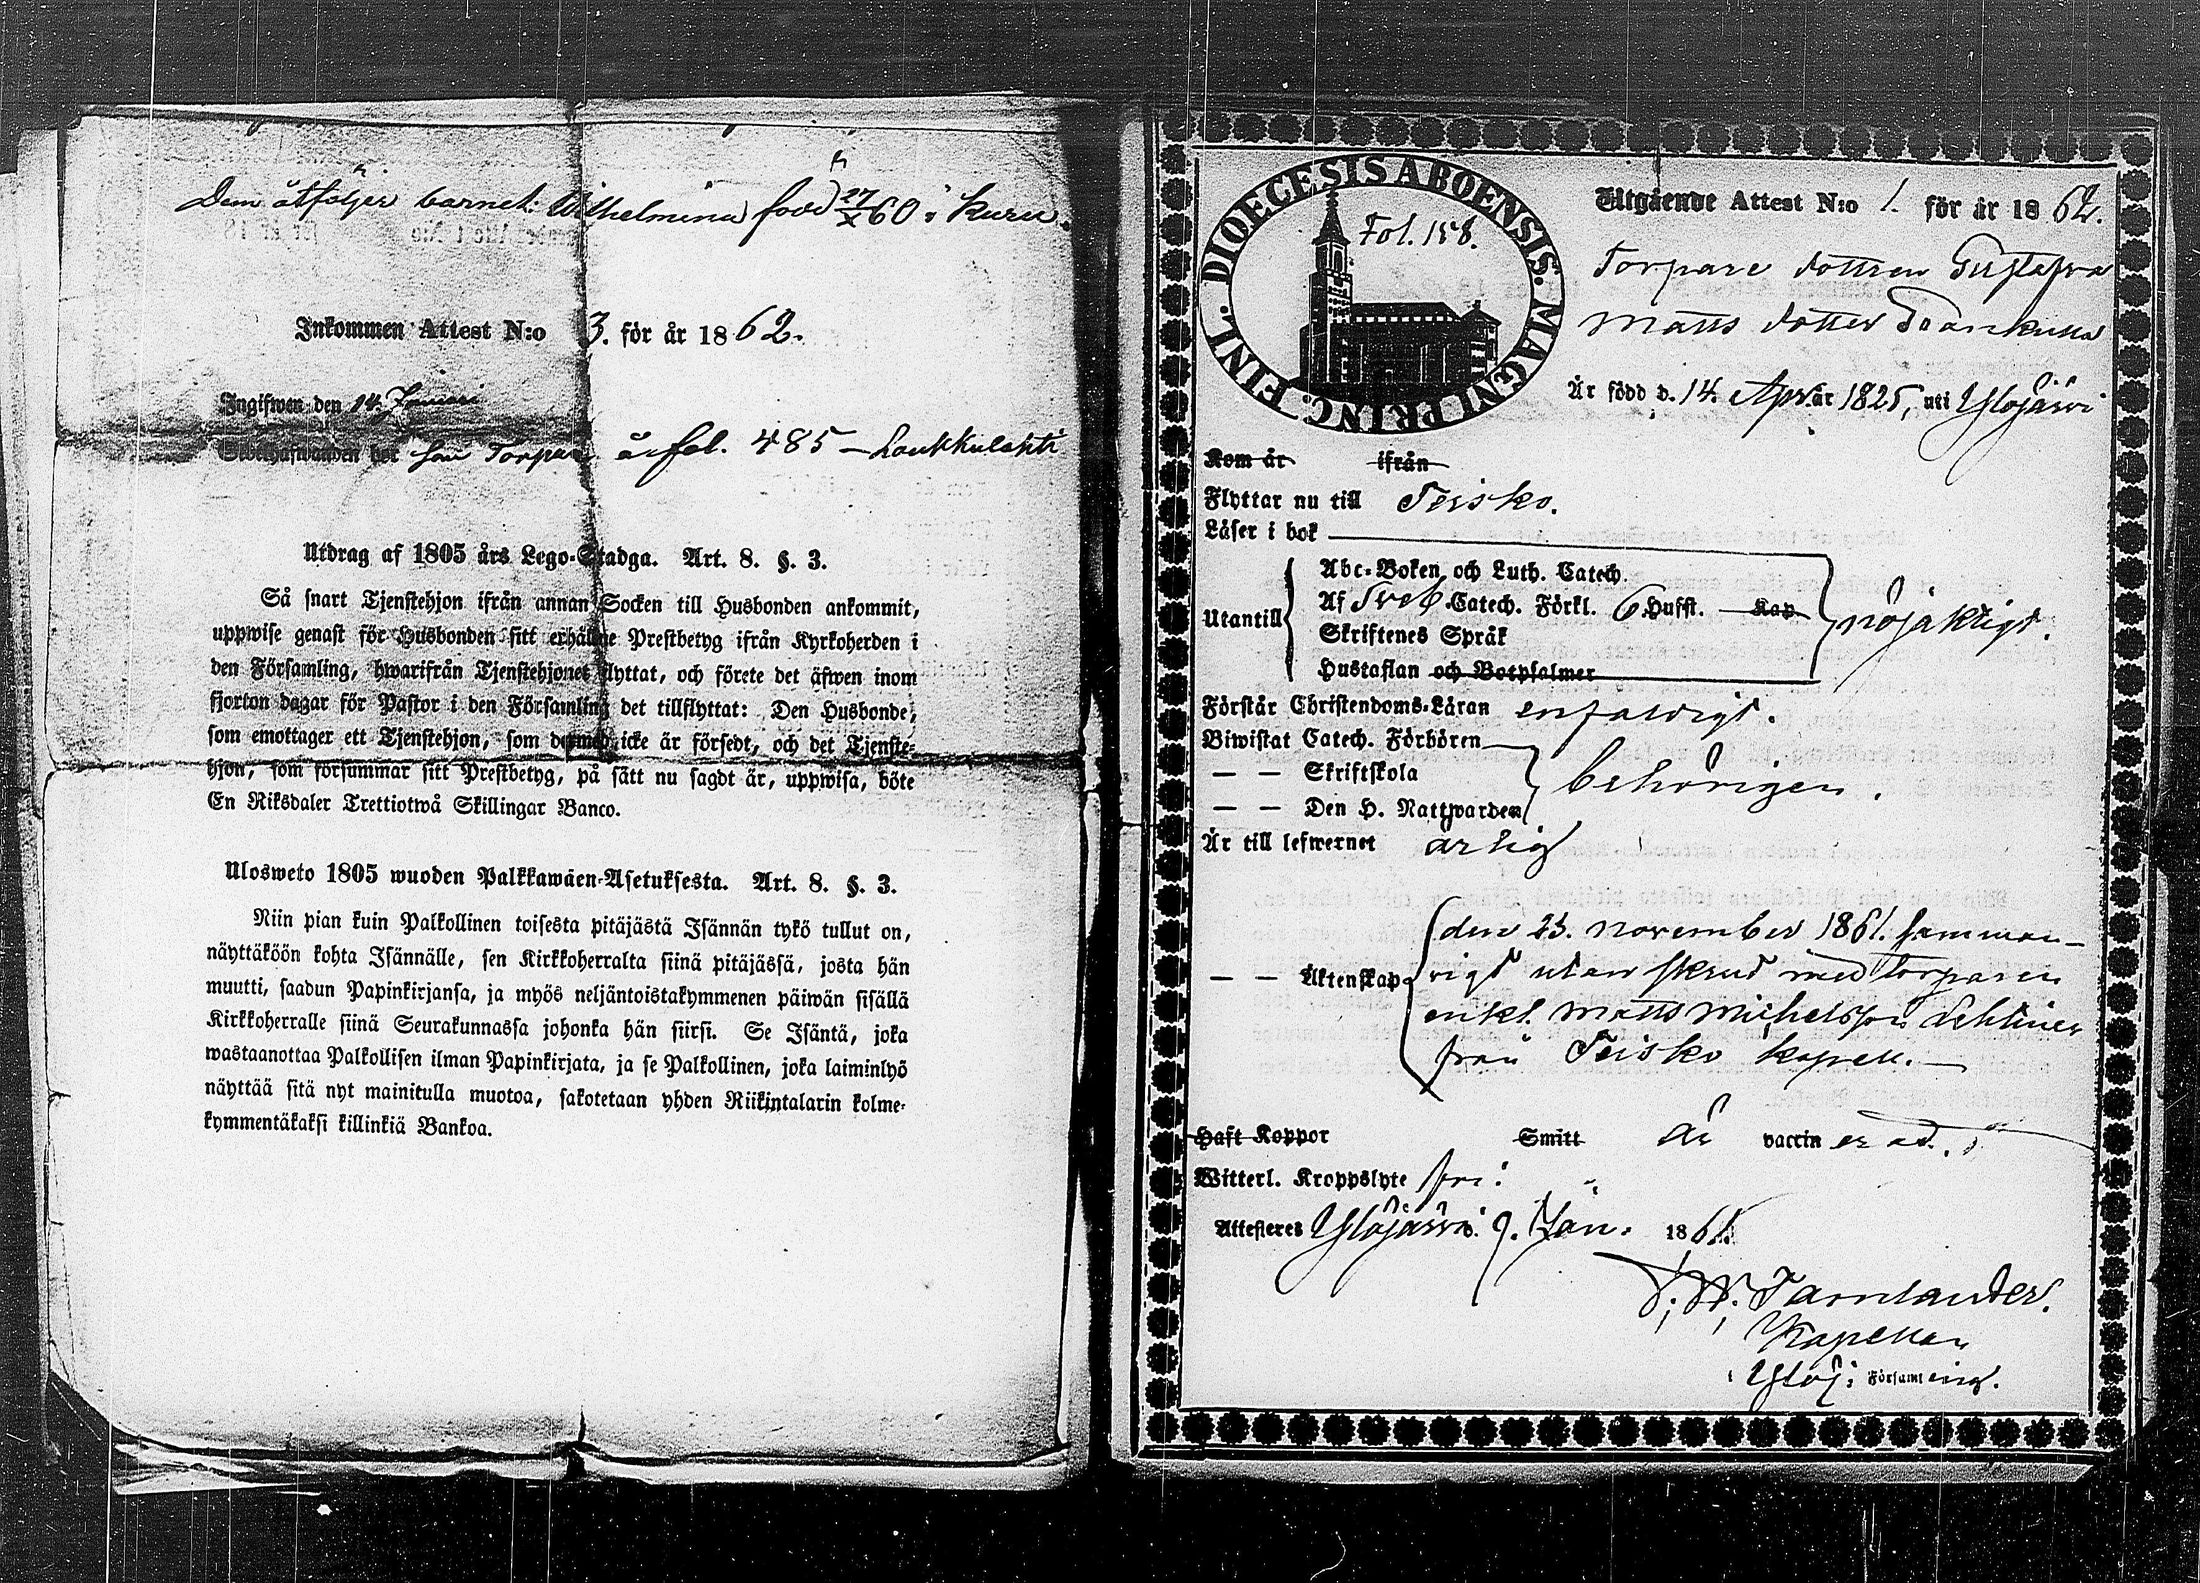 Dem åtföljer barnet: Wilhelmina född 27/X 60 i Kuru.
Inkommen Attest N:o 3. för år 1862.
Ingifwen den 14 Januari
som Torpare å fol. 485 – Loukkulahti
Utdrag af 1805 års Lego-Stadga. Art. 8. §. 3.
Så snart Tjenstehjon ifrån annan Socken till Husbonden ankommit,
uppwise genast för Husbonden sitt erhållne Prestbetyg ifrån Kyrkoherden i
den Församling, hwarifrån Tjenstehjonet flyttat, och förete det äfwen inom
fjorton dagar för Pastor i den Församling det tillflyttat: Den Husbonde,
som emottager ett Tjenstehjon, som dermed icke är försedt, och det Tjenste-
hjon, som försummar sitt Prestbetyg, på sätt nu sagdt är, uppwisa, böte
En Riksdaler Trettiotwå Skillingar Banco.
Ulosweto 1805 wuoden Palkkawäen-Asetuksesta. Art. 8. §. 3.
Niin pian kuin Palkollinen toisesta pitäjästä Isännän tykö tullut on,
näyttäköön kohta Isännälle, sen Kirkkoherralta siinä pitäjässä, josta hän
muutti, saadun Papinkirjansa, ja myös neljäntoistakymmenen päiwän sisällä
Kirkkoherralle siinä Seurakunnassa johonka hän siirsi. Se Isäntä, joka
wastaanottaa Palkollisen ilman Papinkirjata, ja se Palkollinen, joka laiminlyö
näyttää sitä nyt mainitulla muotoa, sakotetaan yhden Riikintalarin kolme-
kymmentäkaksi killinkiä Bankoa.
DIOECESIS ABOENSIS. MAGNI PRINC. FINL.
Fol. 158.
Utgående Attest N:o 1. för år 1862.
Torpare dottren Gustafva
Matts dotter
Är född d. 14. Apr. år 1825, uti Ylöjärvi
Kom år ifrån
Flyttar nu till Teisko.
Läser i bok
Utantill
Abc-Boken och Luth. Catech.
Af Sveb. Catech. Förkl. 6 Hufst. Kap
Skriftenes Språk
Hustaflan och Botpsalmer
nöjaktigt.
Förstår Christendoms-Läran enfaldigt.
Biwistat Catech. Förhören
— — Skriftskola
— — Den H. Nattwarden
behörigen.
Är till lefwernet ärlig
— — Äktenskap
den 23. November 1861. samman-
vigd utan skrud med Torparen
enkl. Matts Michelsson Lehtinen
från Teisko kapell.
Haft Koppor Smitt är vaccinerad.
Witterl. Kroppslyte fri.
Attesteres Ylöjärvi. 9. Jan. 186
Kapellan
Ylöj: Församling.